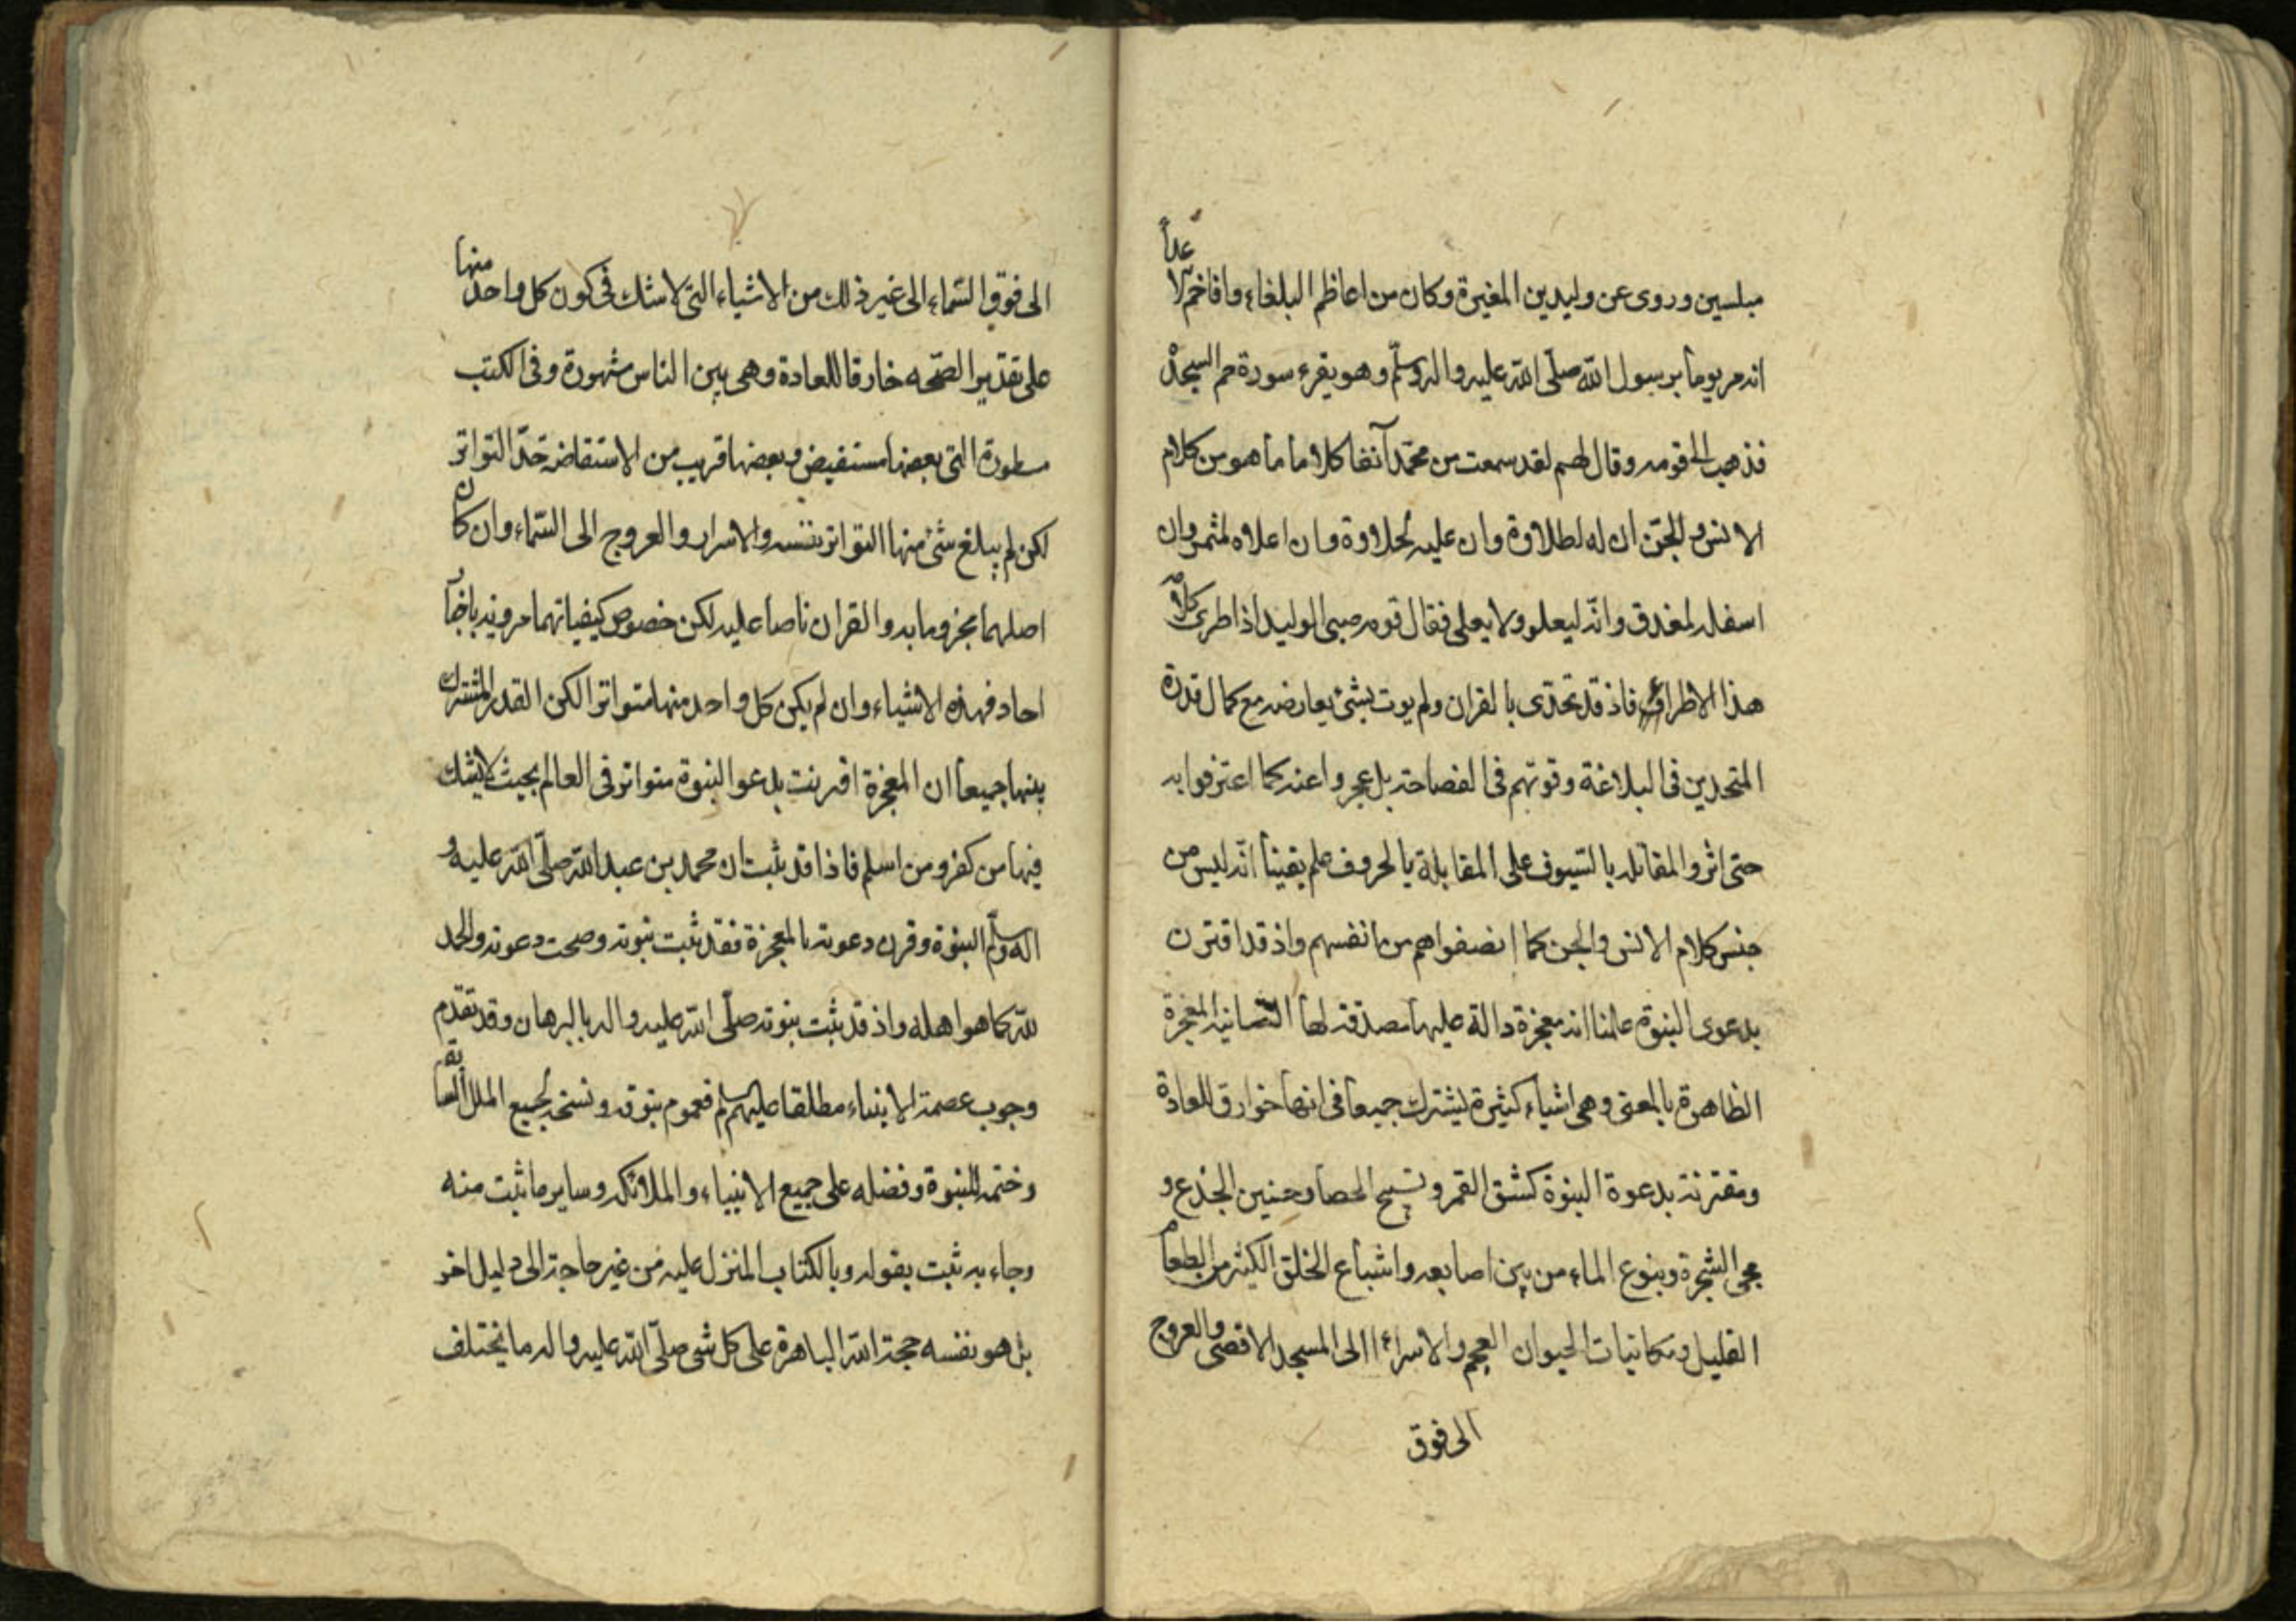 مبلسين وروى عن وليد بن المغيرة وكان من اعاظم البلغاء وافاخم الاعداء
انه مر يوما برسول الله صلى الله عليه واله وسلم وهو يقرء سورة حم السجدة
فذهب الى قومه وقال لهم لقد سمعت من محمد آنفا كلاما ما هو من كلام
الانس والجن ان له لطلاوة وان عليه لحلاوة وان اعلاه لمثمر وان
اسفله لمغدق وانه ليعلو ولا يعلى فقال قومه صبى الوليد اذ اطرى كلامه
هذا الاطراء فاذ قد تحدى بالقران ولم يوت بشئ يعارضه مع كمال قدرة
المتحدين فى البلاغة وقوتهم فى الفصاحة بل عجزوا عنه كما اعترفوا به
حتى اثروا المقاتله بالسيوف على المقابلة بالحروف علم يقينا انه ليس من
جنس كلام الانس والجن كما انصفوا هم من انفسهم واذ قد اقترن
بدعوى النبوة علمنا انه معجزة دالة عليها مصدقة لها الثانية المعجزة
الظاهرة بالمعنى وهى اشياء كثيرة يشترك جميعا فى انها خوارق للعادة
ومقترنة بدعوة النبوة كشق القمر وتسبيح الحصا وحنين الجذع و
مجى الشجرة وينوع الماء من بين اصابعه واشباع الخلق الكثير من الطعام
القليل ومكانيات الحيوان العجم والاسراء الى المسجد الاقصى والعروج
الى فوق
الى فوق السماء الى غير ذلك من الاشياء التى لا شك فى كون كل واحد منها
على تقدير الصحه خارقا للعادة وهى بين الناس مشهورة وفى الكتب
مسطورة التى بعضها مستفيض وبعضها قريب من الاستفاضة حد التواتر
لكن لم يبلغ شئ منها التواتر بنفسه والاسراء والعروج الى السماء وان كان
اصلهما مجزوما به والقران ناصا عليه لكن خصوص كيفياتهما مروية باخبار
احاد فهذه الاشياء وان لم يكن كل واحد منها متواترا لكن القدر المشترك
بينها جميعا ان المعجزة اقرنت بدعوا النبوة متواتر فى العالم بحيث لا يشك
فيها من كفر ومن اسلم فاذا قد ثبت ان محمد بن عبد الله صلى الله عليه و
اله وسلم النبوة وقرن دعوته بالمعجزة فقد ثبت نبوته وصحت دعوته والحمد
لله كما هو اهله واذ قد ثبت نبوته صلى الله عليه واله بالبرهان وقد تقدم
وجوب عصمة الانبياء مطلقا عليهم السلام فعموم نبوته ونسخه لجميع الملل السابقة
وختمه للنبوة وفضله على جميع الانبياء والملائكه وساير ما ثبت منه
وجاء به ثبت بقوله وبالكتاب المنزل عليه من غير حاجة الى دليل اخر
بل هو نفسه حجة الله الباهرة على كل شى صلى الله عليه واله ما يختلف